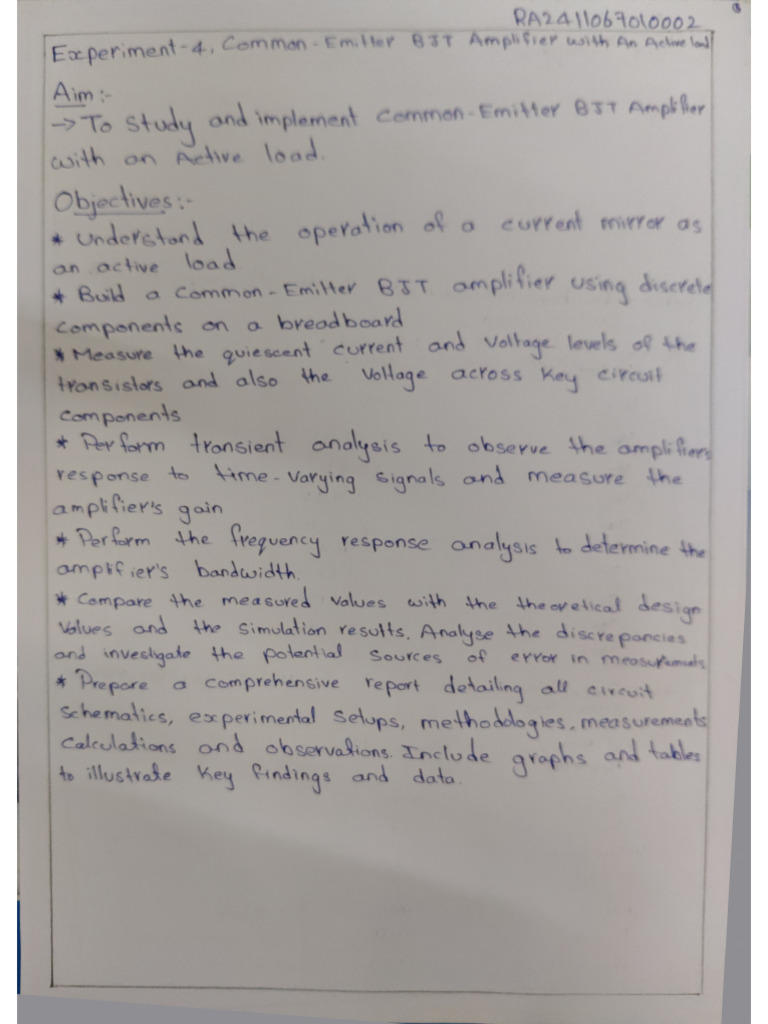 RA2411067010002
Experiment-4, Common-Emitter BJT Amplifier with An Active load
Aim:-
→ To study and implement Common-Emitter BJT Amplifier
with an Active load.
Objectives:-
* Understand the operation of a current mirror as
an active load
* Build a Common-Emitter BJT amplifier using discrete
components on a breadboard
* Measure the quiescent current and voltage levels of the
transistors and also the voltage across key circuit
components
* Perform transient analysis to observe the amplifiers
response to time-varying signals and measure the
amplifier's gain
* Perform the frequency response analysis to determine the
amplifier's bandwidth.
* Compare the measured values with the theoretical design
values and the simulation results. Analyse the discrepancies
and investigate the potential sources of error in measurements
* Prepare a comprehensive report detailing all circuit
schematics, experimental setups, methodologies, measurements
calculations and observations. Include graphs and tables
to illustrate key findings and data.